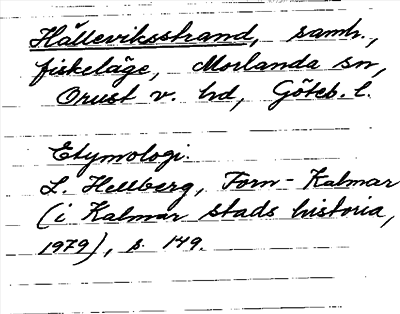 Hälleviksstrand, samh.,
fiskeläge, Morlanda sn,
Orust v. hd, Göteb. l.
Etymologi.
L. Hellberg, Forn-Kalmar
(i Kalmar stads historia,
1979), s. 149.